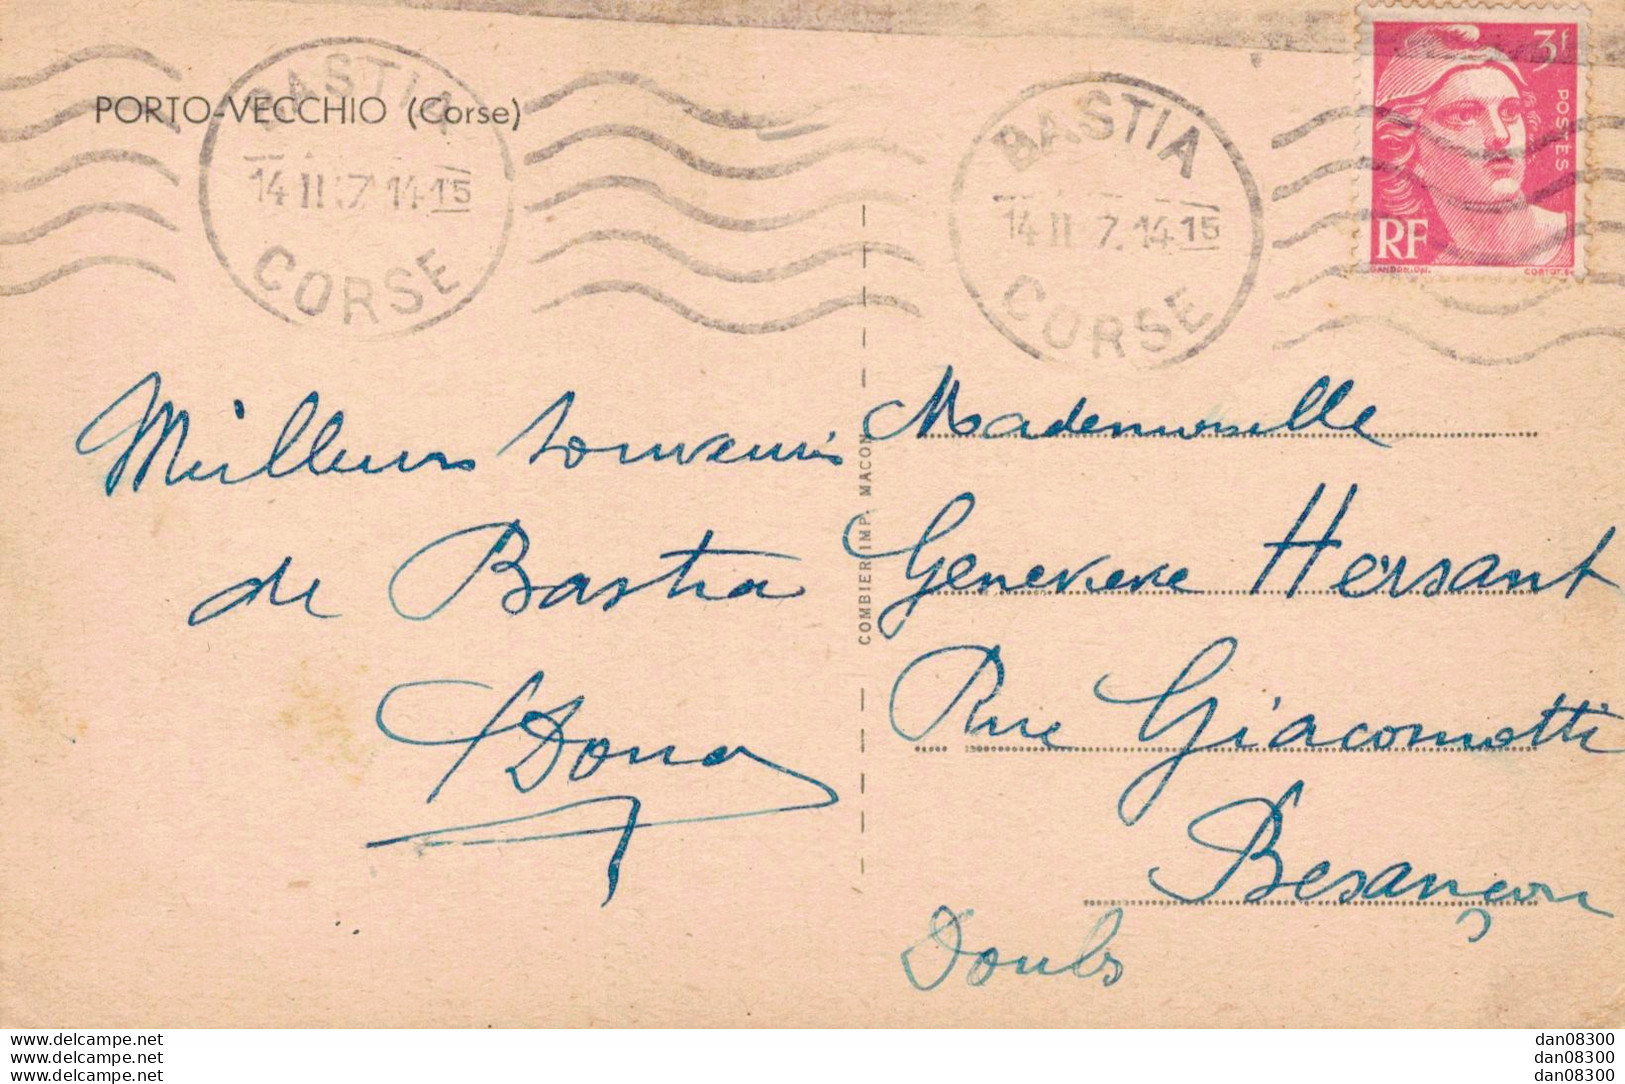 PORTO-VECCHIO (Corse)
BASTIA
14 II 7. 14 15
CORSE
BASTIA
14 II 7. 14 15
CORSE
3f
POSTES
RF
GANDON.DEL.
CORTOT.SC
Meilleurs souvenirs
de Bastia
COMBIER IMP. MACON
Mademoiselle
Genevieve Hersant
Rue Giacomotti
Besançon
Doubs
www.delcampe.net
www.delcampe.net
www.delcampe.net
dan08300
dan08300
dan08300